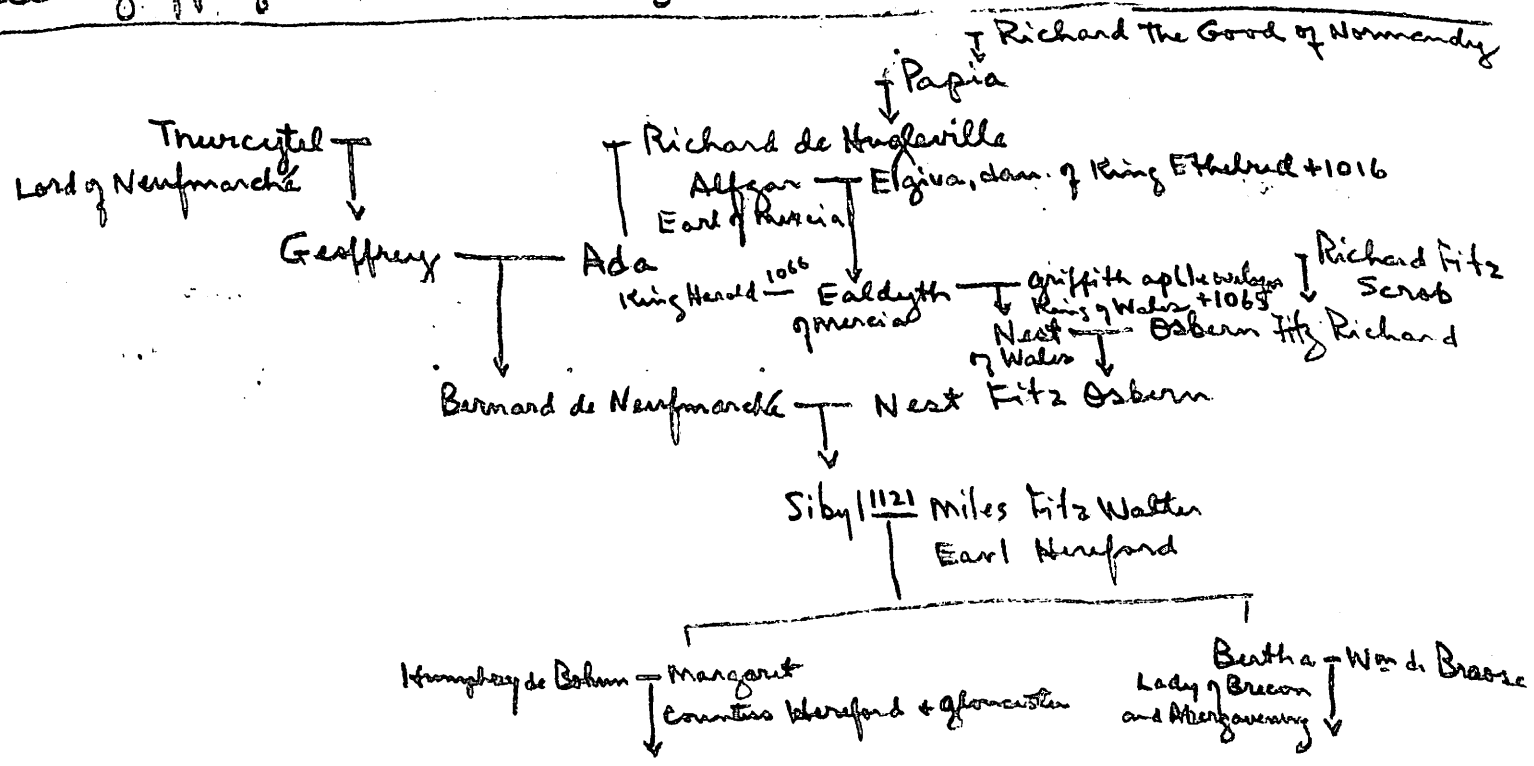 Richard The Good of Normandy
Papia
Thurcytel
Lord of Neufmarché
Richard de Hugleville
Alfgar Elgiva, dau. of King Ethelred +1016
Earl of Mercia
Geoffrey Ada
King Harold 1066 Ealdgyth
of Mercia
Griffith ap Llewelyn
King of Wales +1063
Richard Fitz
Scrob
Nest Osbern Fitz Richard
of Wales
Bernard de Neufmarché Nest Fitz Osbern
Sibyl 1121 Miles Fitz Walter
Earl Hereford
Humphrey de Bohun Margaret
Countess Hereford + Gloucester
Bertha Wm de Braose
Lady of Brecon
and Abergavenny